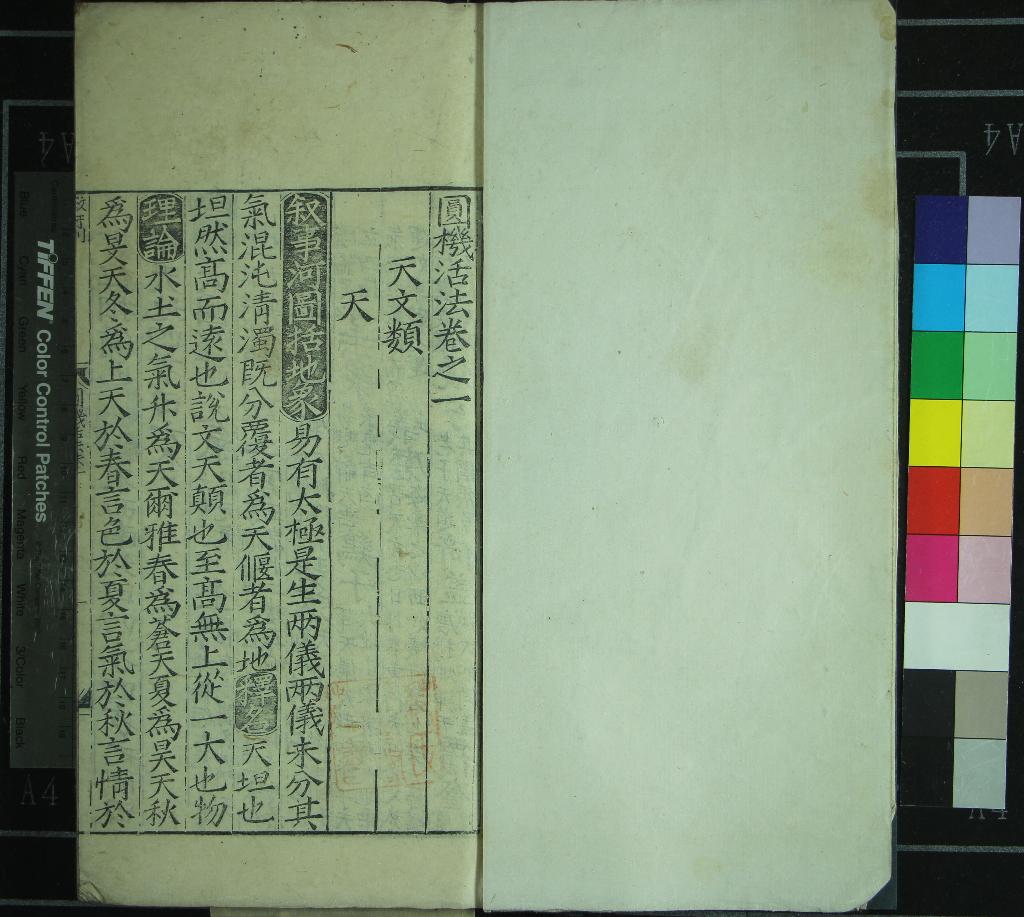 圓機活法卷之一
天文類
天
叙事河圖括地象易有太極是生兩儀兩儀未分其
氣混沌清濁既分覆者爲天偃者爲地釋名天坦也
坦然髙而逺也說文天顛也至髙無上從一大也物
理論水土之氣升爲天爾雅春爲蒼天夏爲昊天秋
爲旻天冬爲上天於春言色於夏言氣於秋言情於
TIFFEN Color Control Patches
Blue
Cyan
Green
Yellow
Red
Magenta
White
3/Color
Black
A4
A4
A4
A4